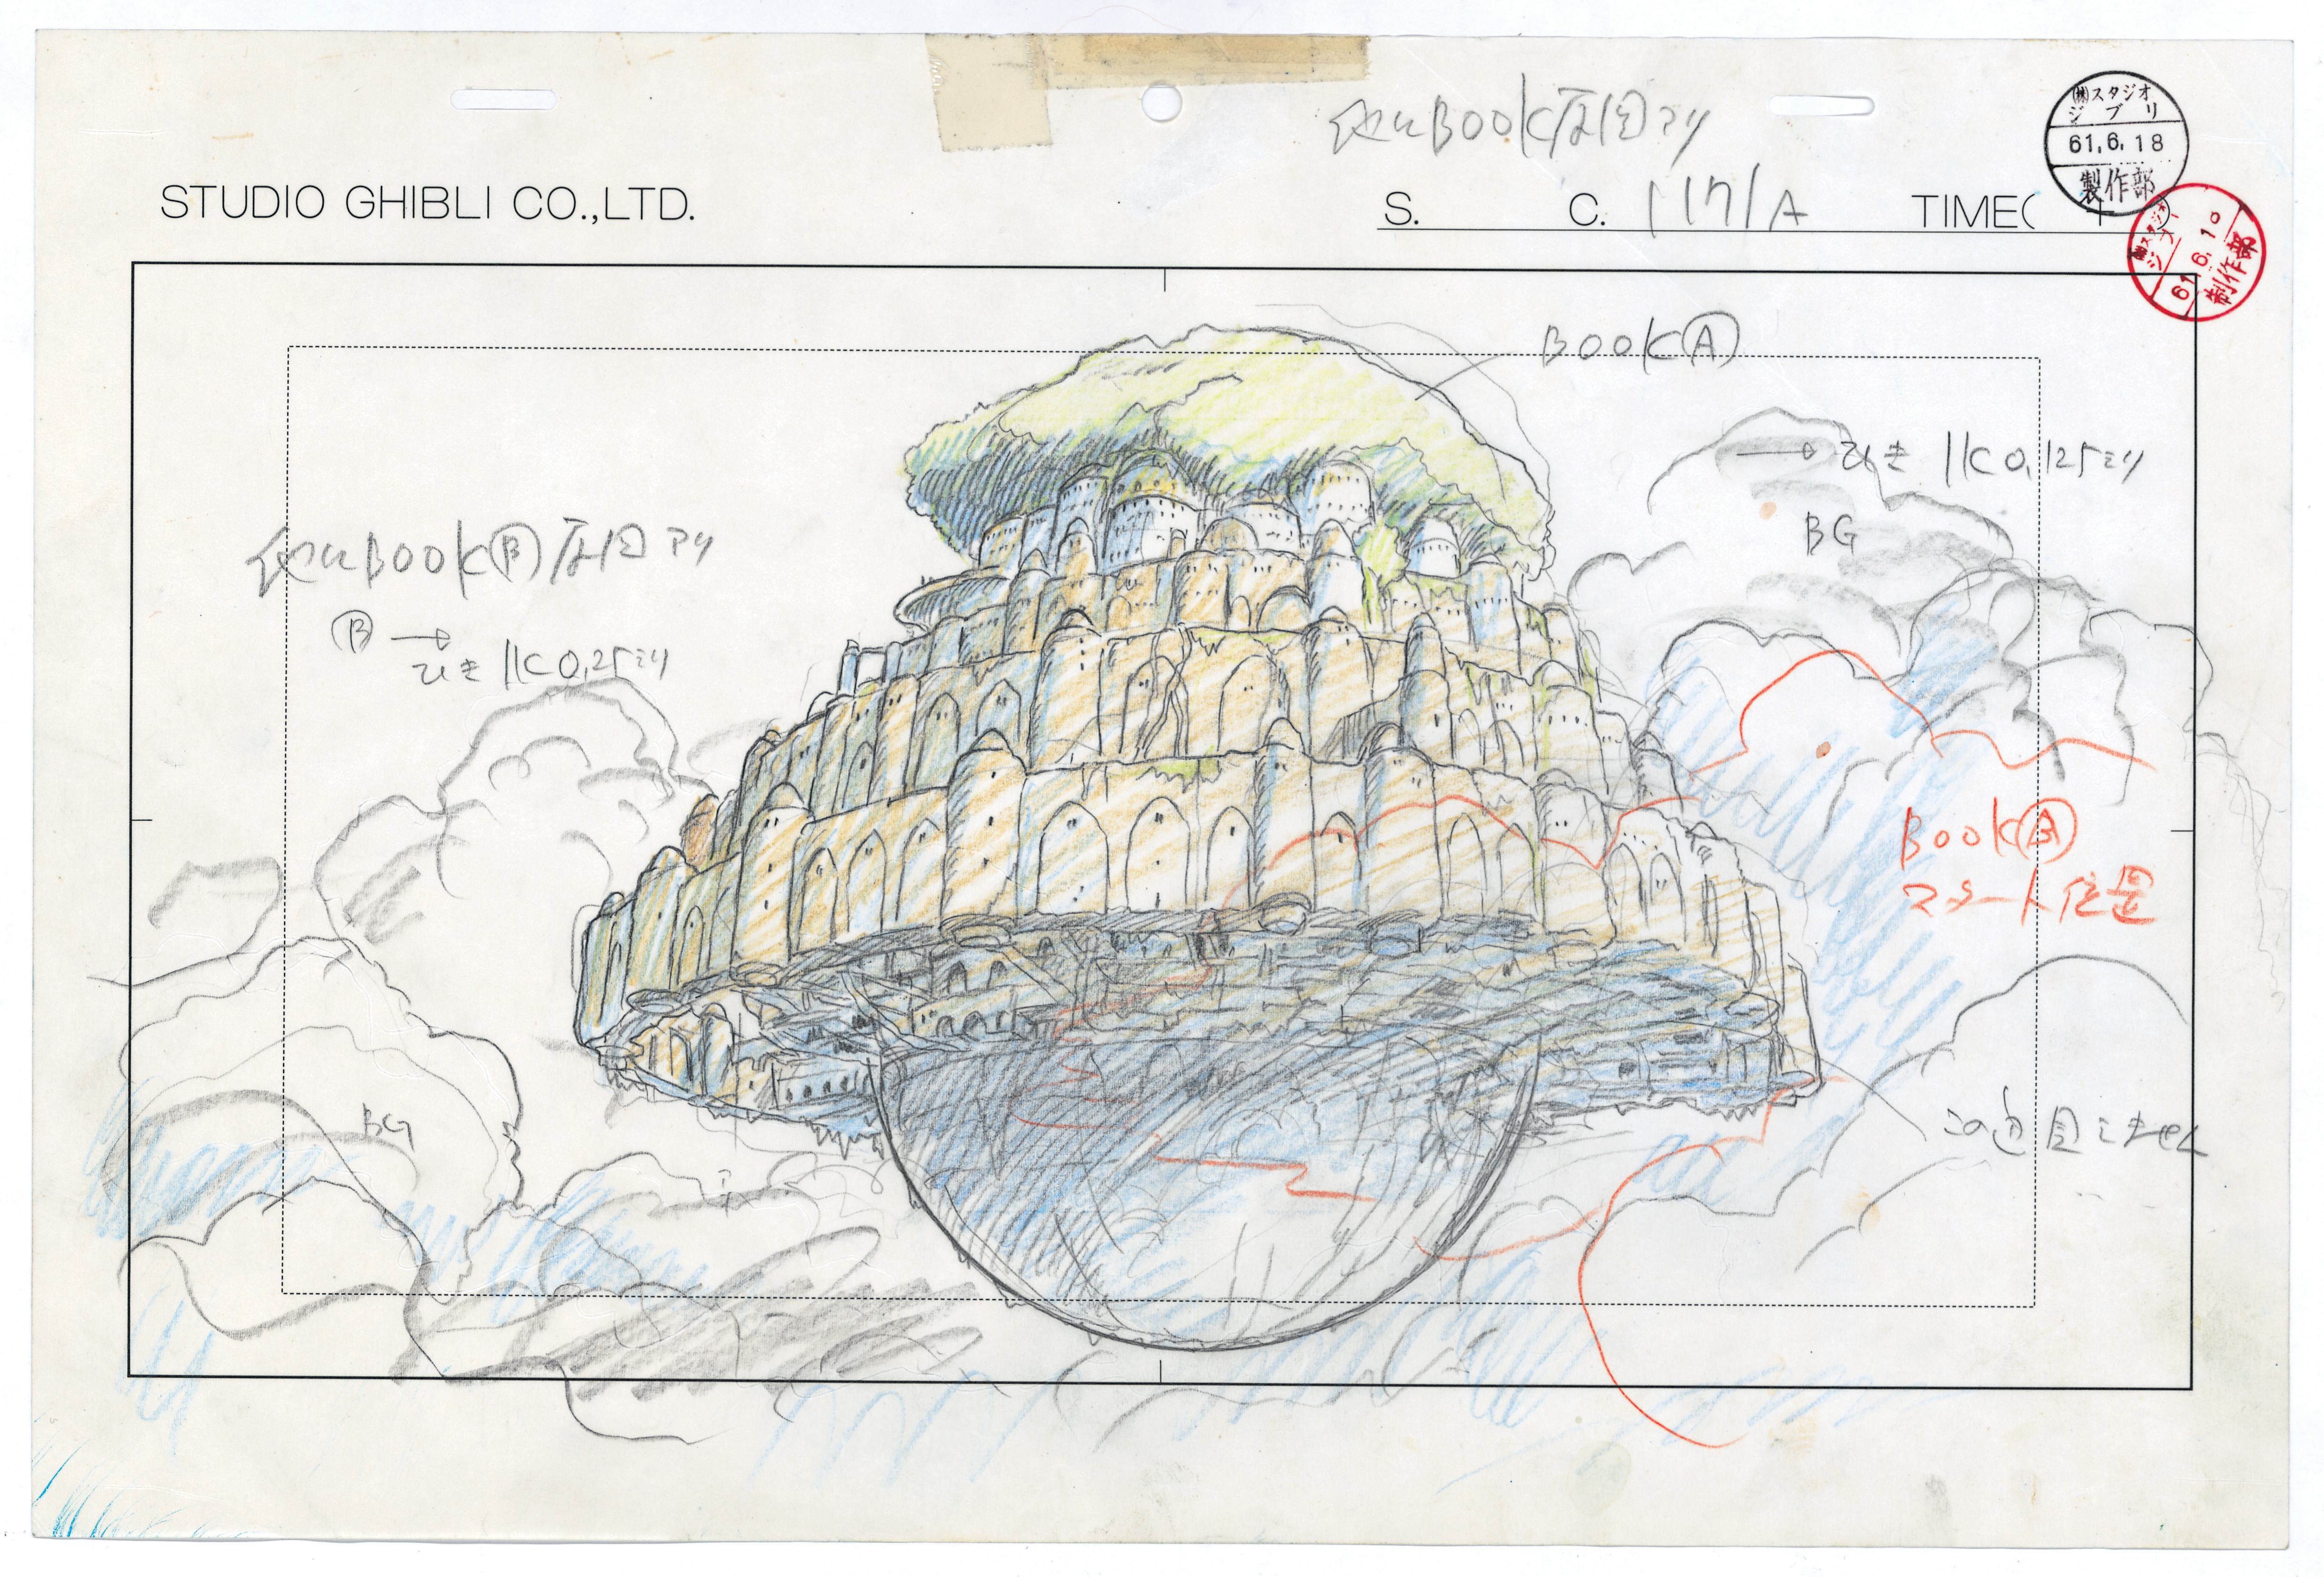 他にBOOK原図アリ
㈱スタジオ
ジブリ
61.6.18
製作部
STUDIO GHIBLI CO.,LTD.
S. C. 1171A TIME( + )
㈱スタジオ
ジブリ
61.6.10
制作部
BOOKⒶ
→ひき 1K 0.125ミリ
BG
他にBOOKⒷ原図アリ
Ⓑ→
ひき 1K 0.25ミリ
BOOK
スタート位置
BG
この辺 見えません